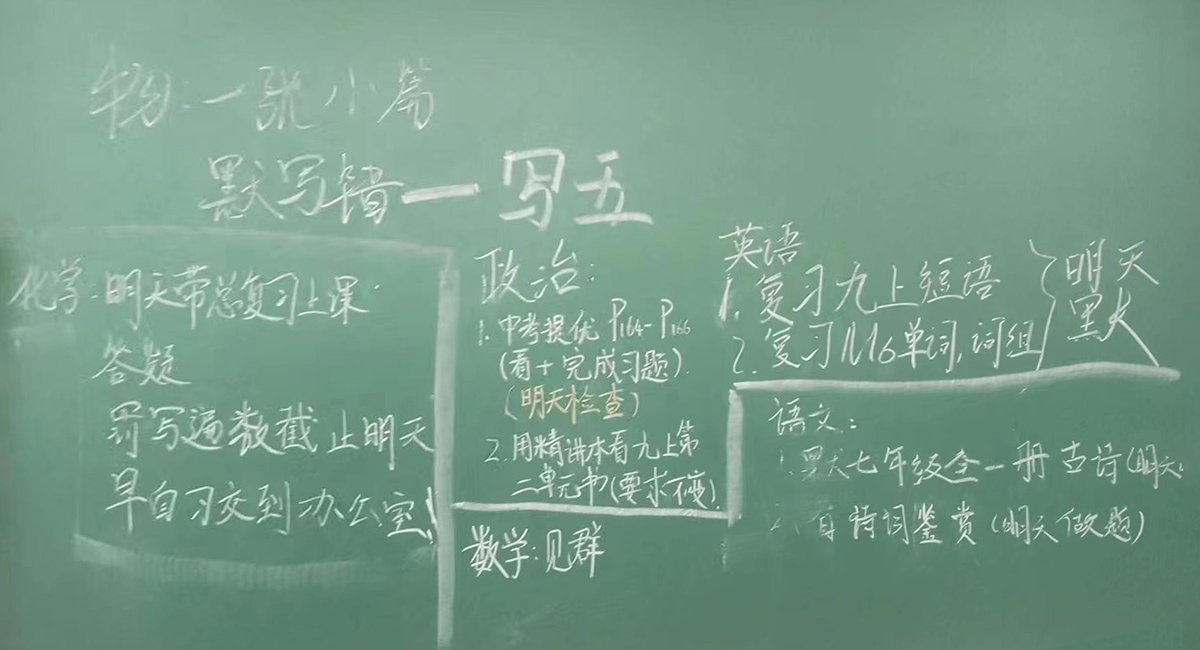 物:一张小篇
默写错一写五
化学:明天带总复习上课
答疑
罚写遍数截止明天
早自习交到办公室!
政治:
1.中考提优 P164-P166
(看+完成习题)
(明天检查)
2.用精讲本看九上第
二单元书(要求不变)
数学:见群
英语
1.复习九上短语
2.复习 单词,词组
明天
默
语文:
1.默七年级全一册古诗(明天
2. 诗词鉴赏(明天做题)